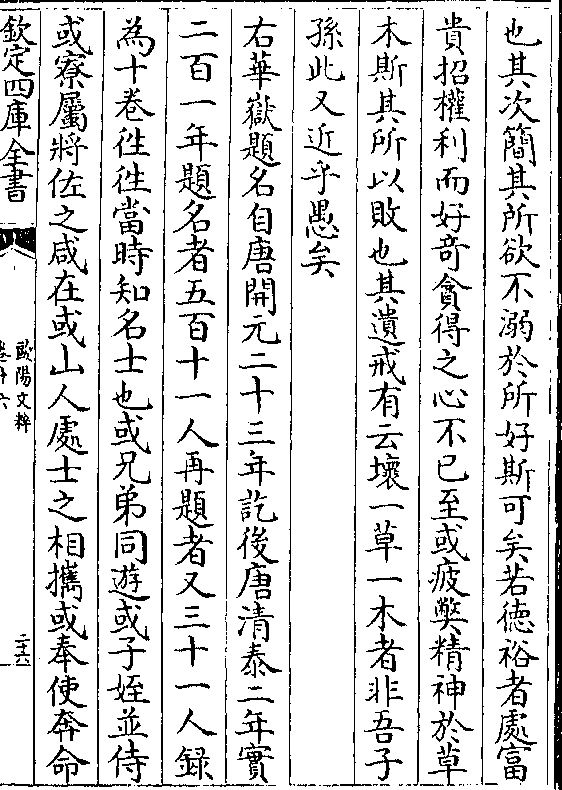 也其次簡其所欲不溺於所好斯可矣若徳裕者處富
貴招權利而好竒貪得之心不已至或疲𡚁精神於草
木斯其所以敗也其遺戒有云壞一草一木者非吾子
孫此又近乎愚矣
右華嶽題名自唐開元二十三年訖後唐清泰二年實
二百一年題名者五百十一人再題者又三十一人録
為十卷徃徃當時知名士也或兄弟同遊或子姪並侍
或寮屬將佐之咸在或山人處士之相攜或奉使奔命
欽定四庫全書
歐陽文粹
卷十六
二十六